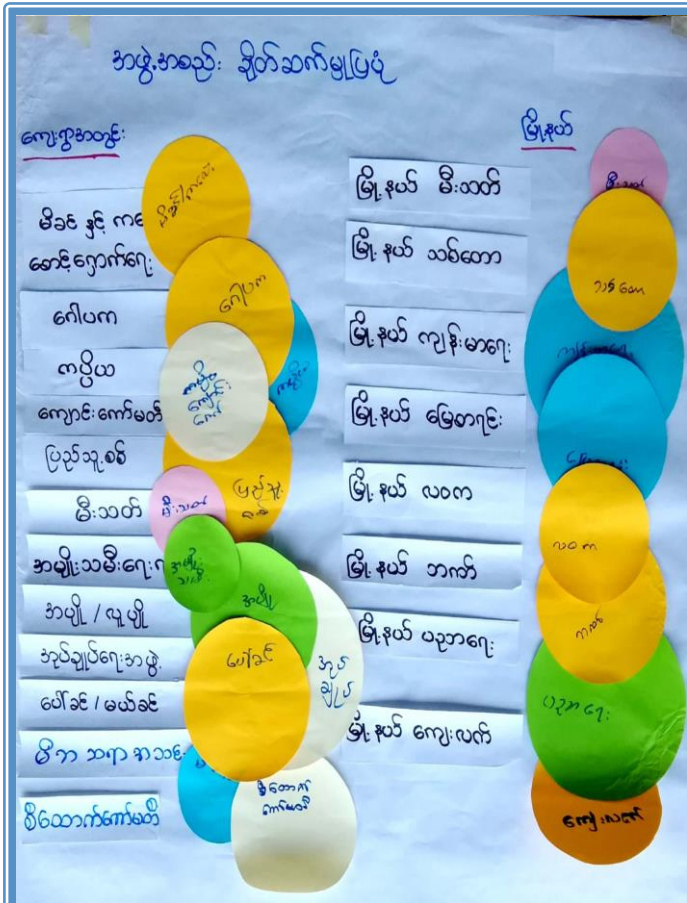 အဖွဲ့အစည်း ချိတ်ဆက်မှုပြပုံ
ကျေးရွာအတွင်း
မိခင် နှင့် ကလေး
စောင့်ရှောက်ရေး
ဂေါပက
ကပ္ပိယ
ကျောင်းကော်မတီ
ပြည်သူ့စစ်
မီးသတ်
အမျိုးသမီးရေးရာ
အပျို / လူပျို
အုပ်ချုပ်ရေးအဖွဲ့
ပေါ်ခင် / မယ်ခင်
မိဘ ဆရာ အသင်း
စီထောက်ကော်မတီ
မိခင်/ကလေး
ဂေါပက
ကပ္ပိယ
ကျောင်း
ကော်
ပြည်သူ့
စစ်
မီးသတ်
အပျို
ပေါ်ခင်
အုပ်
ချုပ်
စီထောက်
ကော်မတီ
မြို့နယ်
မြို့နယ် မီးသတ်
မြို့နယ် သစ်တော
မြို့နယ် ကျန်းမာရေး
မြို့နယ် မြေစာရင်း
မြို့နယ် လဝက
မြို့နယ် ဘဏ်
မြို့နယ် ပညာရေး
မြို့နယ် ကျေးလက်
မီးသတ်
သစ်တော
ကျန်းမာရေး
လဝက
ပညာရေး
ကျေးလက်